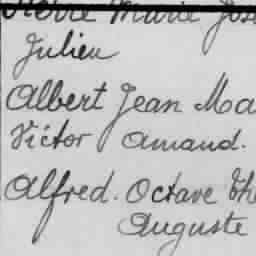 Pierre Marie Jos
Julien
Albert Jean Ma
Victor Amand.
Alfred. Octave Thé
Auguste